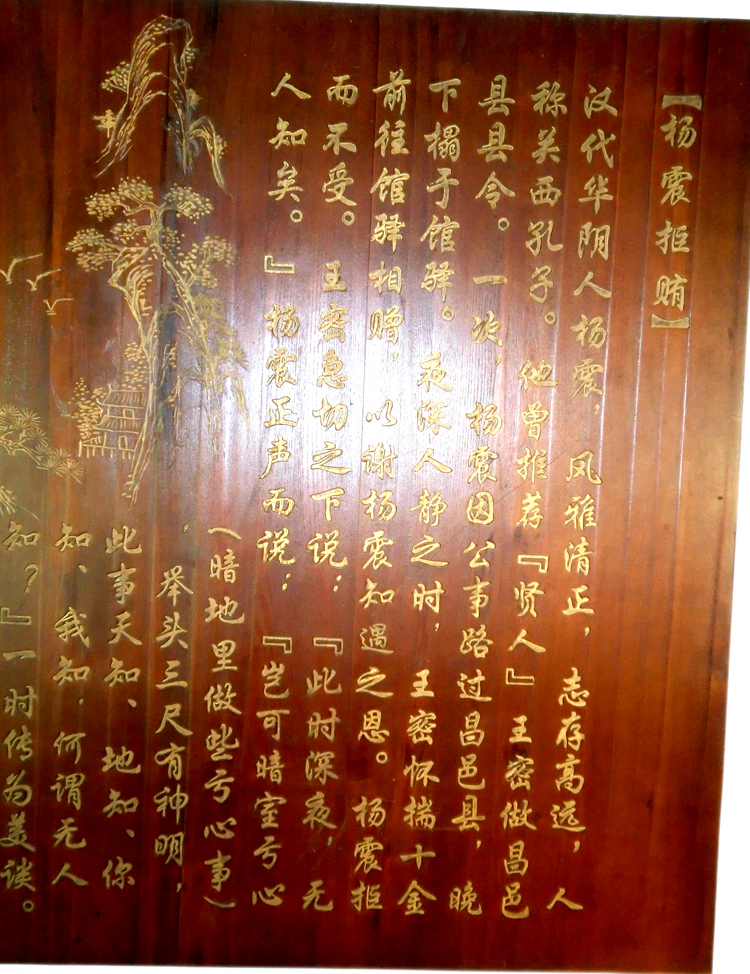 【杨震拒贿】
汉代华阴人杨震，风雅清正，志存高远，人
称关西孔子。他曾推荐『贤人』王密做昌邑
县县令。一次，杨震因公事路过昌邑县，晚
下榻于馆驿。夜深人静之时，王密怀揣十金
前往馆驿相赠，以谢杨震知遇之恩。杨震拒
而不受。王密急切之下说：『此时深夜，无
人知矣。』杨震正声而说：『岂可暗室亏心
（暗地里做些亏心事）
，举头三尺有神明，
此事天知、地知、你
知、我知，何谓无人
知？』一时传为美谈。